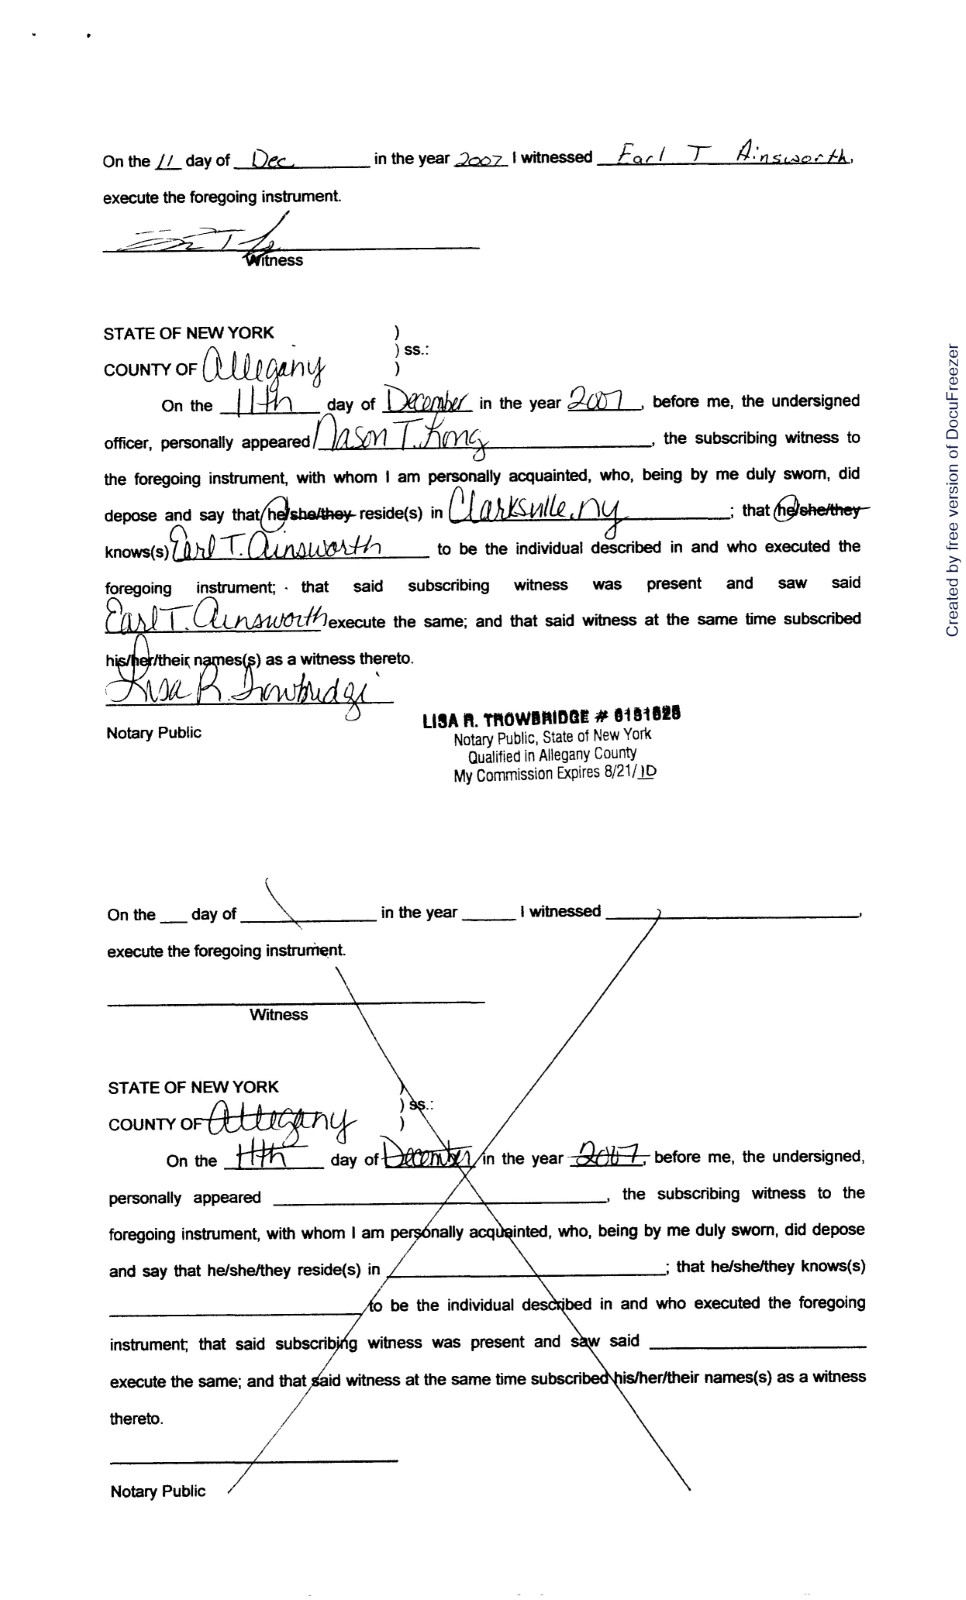 On the 11 day of Dec in the year 2007 I witnessed Earl T Ainsworth,
execute the foregoing instrument.
Witness
STATE OF NEW YORK )
) ss.:
COUNTY OF Allegany )
On the 11th day of December in the year 2007, before me, the undersigned
officer, personally appeared Jason T. Long, the subscribing witness to
the foregoing instrument, with whom I am personally acquainted, who, being by me duly sworn, did
depose and say that he/she/they reside(s) in Clarksville, ny; that he/she/they
knows(s) Earl T. Ainsworth to be the individual described in and who executed the
foregoing instrument; that said subscribing witness was present and saw said
Earl T. Ainsworth execute the same; and that said witness at the same time subscribed
his/her/their names(s) as a witness thereto.
Lisa R. Trowbridge
Notary Public
LISA R. TROWBRIDGE # 6161626
Notary Public, State of New York
Qualified in Allegany County
My Commission Expires 8/21/10
On the ___ day of ___ in the year ___ I witnessed ___,
execute the foregoing instrument.
Witness
STATE OF NEW YORK )
) ss.:
COUNTY OF Allegany )
On the 11th day of December in the year 2007, before me, the undersigned,
personally appeared ___, the subscribing witness to the
foregoing instrument, with whom I am personally acquainted, who, being by me duly sworn, did depose
and say that he/she/they reside(s) in ___; that he/she/they knows(s)
___ to be the individual described in and who executed the foregoing
instrument; that said subscribing witness was present and saw said ___
execute the same; and that said witness at the same time subscribed his/her/their names(s) as a witness
thereto.
Notary Public
Created by free version of DocuFreezer